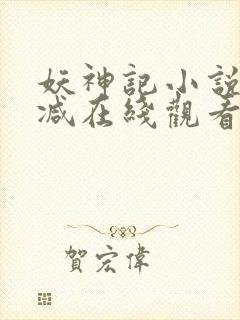 妖神記小說
減在綫觀看
賀宏偉